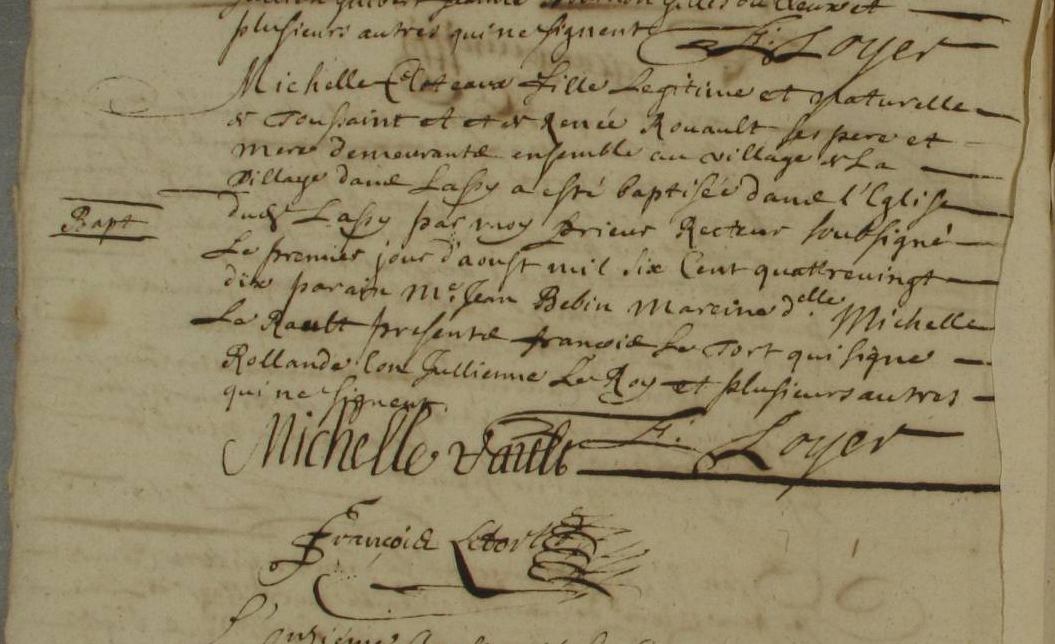 plusieurs autres qui ne signent F. Loyer
Michelle Cloteaux fille Legitime et naturelle
de Toussaint et de Renée Rouault ses pere et
mere demeurants ensemble au village de La
village dans Lassy a esté baptisée dans l'Eglise
Bapt
dud Lassy par moy prieur Recteur soubsigné
Le premier jour d'aoust mil six Cent quattrevingt
dix parain Me. Jean Bebin Mareine d.elle Michelle
Le Rault presents françois Le Tort qui signe
Rollande Jullienne Le Roy et plusieurs autres
qui ne signent
Michelle rault F. Loyer
François Letort
L'onzieme